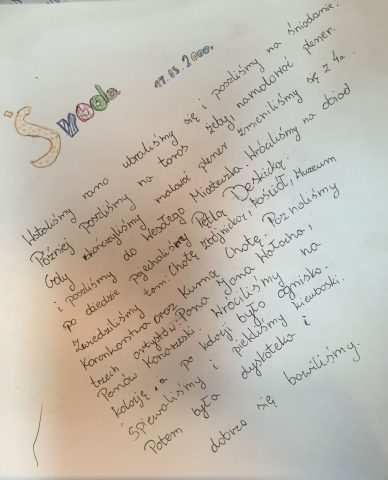 Środa
17.05.2000r.
Wstaliśmy rano ubraliśmy się i poszliśmy na śniadanie.
Później poszliśmy na taras żeby namalować plener.
Gdy skończyliśmy malować plener zmieniliśmy się z 4a
i poszliśmy do Wesołego Miasteczka. Wróciliśmy na obiad
po obiedzie pojechaliśmy
Zwiedziliśmy tam: Chatę zbójnicką, kościół, Muzeum
Koronkarstwa oraz Kurną Chatę. Poznaliśmy
trzech artystów: Pana Jana Wałacha,
Panów Konarzewski. Wróciliśmy na
kolację, a po kolacji było ognisko.
Śpiewaliśmy i piekliśmy kiełbaski.
Potem była dyskoteka i
dobrze się bawiliśmy.